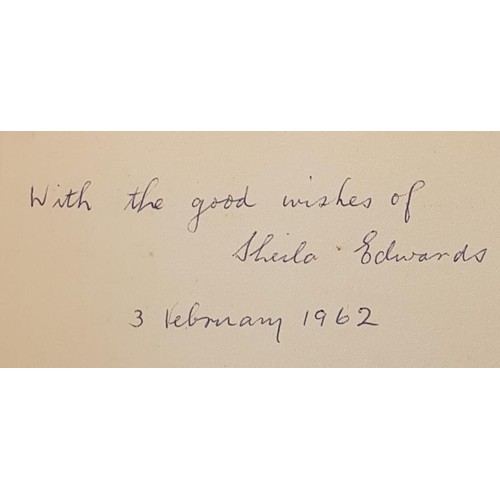 With the good wishes of
Sheila Edwards
3 February 1962